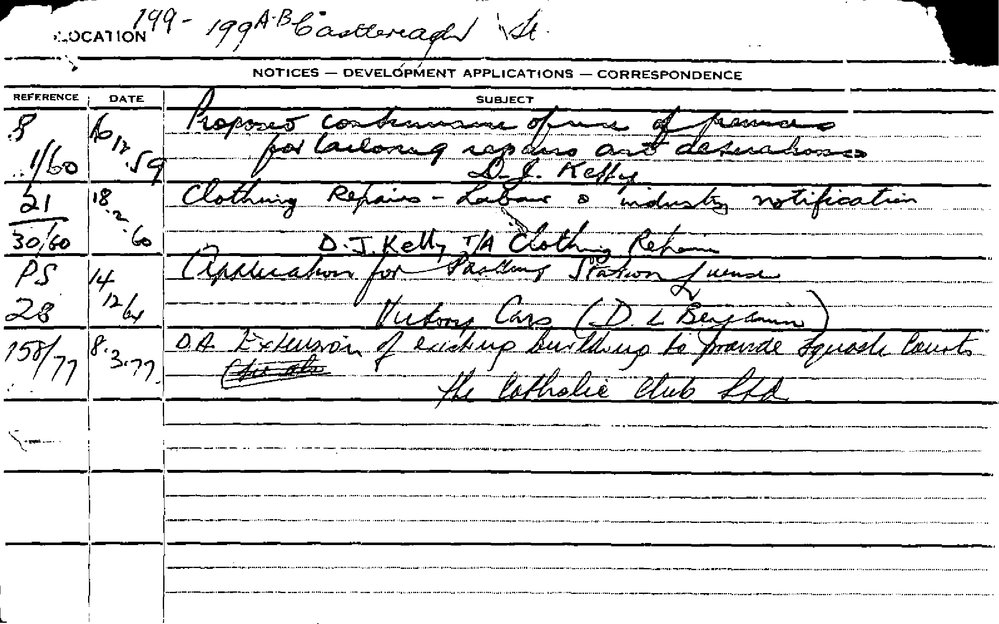 LOCATION 199- 199A-B Castlereagh St.
NOTICES — DEVELOPMENT APPLICATIONS — CORRESPONDENCE
REFERENCE DATE SUBJECT
8 10 Proposed continuance of use of premises
1/60 12 59 for tailoring repairs and
D.J. Kelly
21 18 Clothing Repairs - Labour & industry notification
30/60 2 60 D.J. Kelly T/A Clothing Repairs
PS 14 Application for Parking Station license
28 12/64 Victory Cars (D L Benjamin)
158/77 8.3.77 DA Extension of existing building to provide Squash Courts
The Catholic Club Ltd